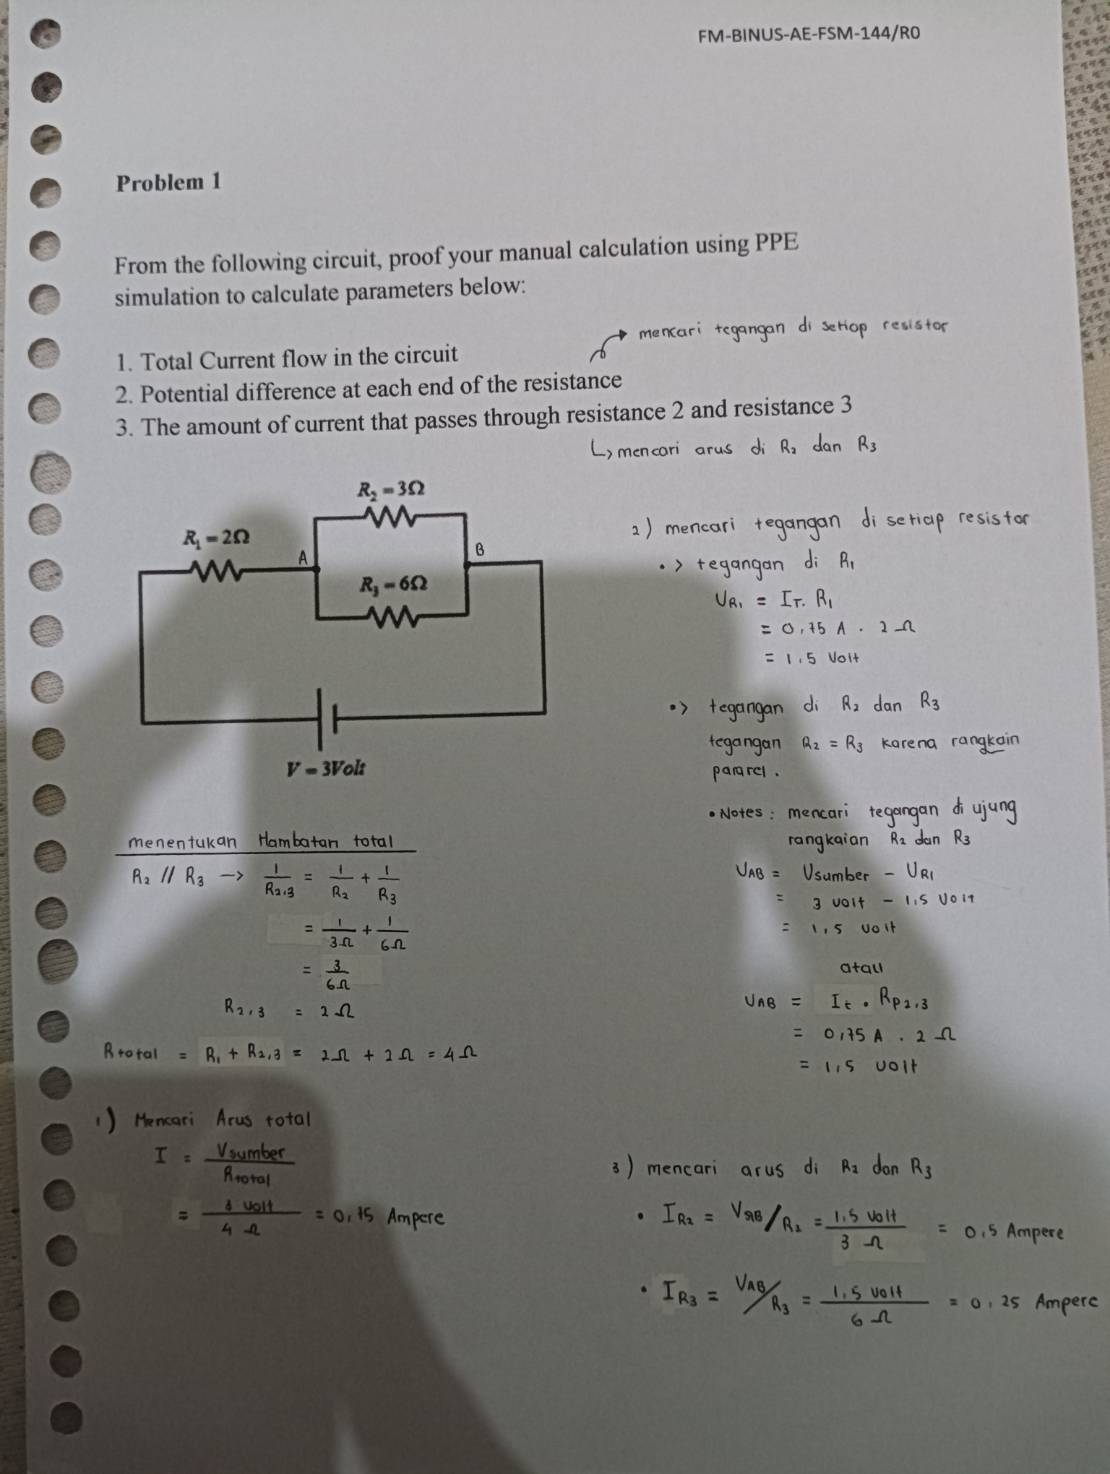 FM-BINUS-AE-FSM-144/R0
Problem 1
From the following circuit, proof your manual calculation using PPE
simulation to calculate parameters below:
mencari tegangan di setiap resistor
1. Total Current flow in the circuit
2. Potential difference at each end of the resistance
3. The amount of current that passes through resistance 2 and resistance 3
↳ mencari arus di R₂ dan R₃
R₂ = 3Ω
R₁ = 2Ω
A
B
R₃ = 6Ω
V = 3Volt
menentukan Hambatan total
R₂ // R₃ → 1/R₂,₃ = 1/R₂ + 1/R₃
= 1/3Ω + 1/6Ω
= 3/6Ω
R₂,₃ = 2Ω
Rtotal = R₁ + R₂,₃ = 2Ω + 2Ω = 4Ω
1) Mencari Arus total
I = Vsumber/Rtotal
= 3 volt/4 Ω = 0,75 Ampere
2) mencari tegangan di setiap resistor
•> tegangan di R₁
VR₁ = IT. R₁
= 0,75 A . 2Ω
= 1,5 Volt
•> tegangan di R₂ dan R₃
tegangan R₂ = R₃ karena rangkain
pararel.
• Notes : mencari tegangan di ujung
rangkaian R₂ dan R₃
VAB = Vsumber - VR₁
= 3 volt - 1,5 Volt
= 1,5 volt
atau
VAB = It . Rp2,3
= 0,75 A . 2 Ω
= 1,5 volt
3) mencari arus di R₂ dan R₃
• IR₂ = VAB/R₂ = 1,5 volt/3 Ω = 0,5 Ampere
• IR₃ = VAB/R₃ = 1,5 volt/6 Ω = 0,25 Ampere